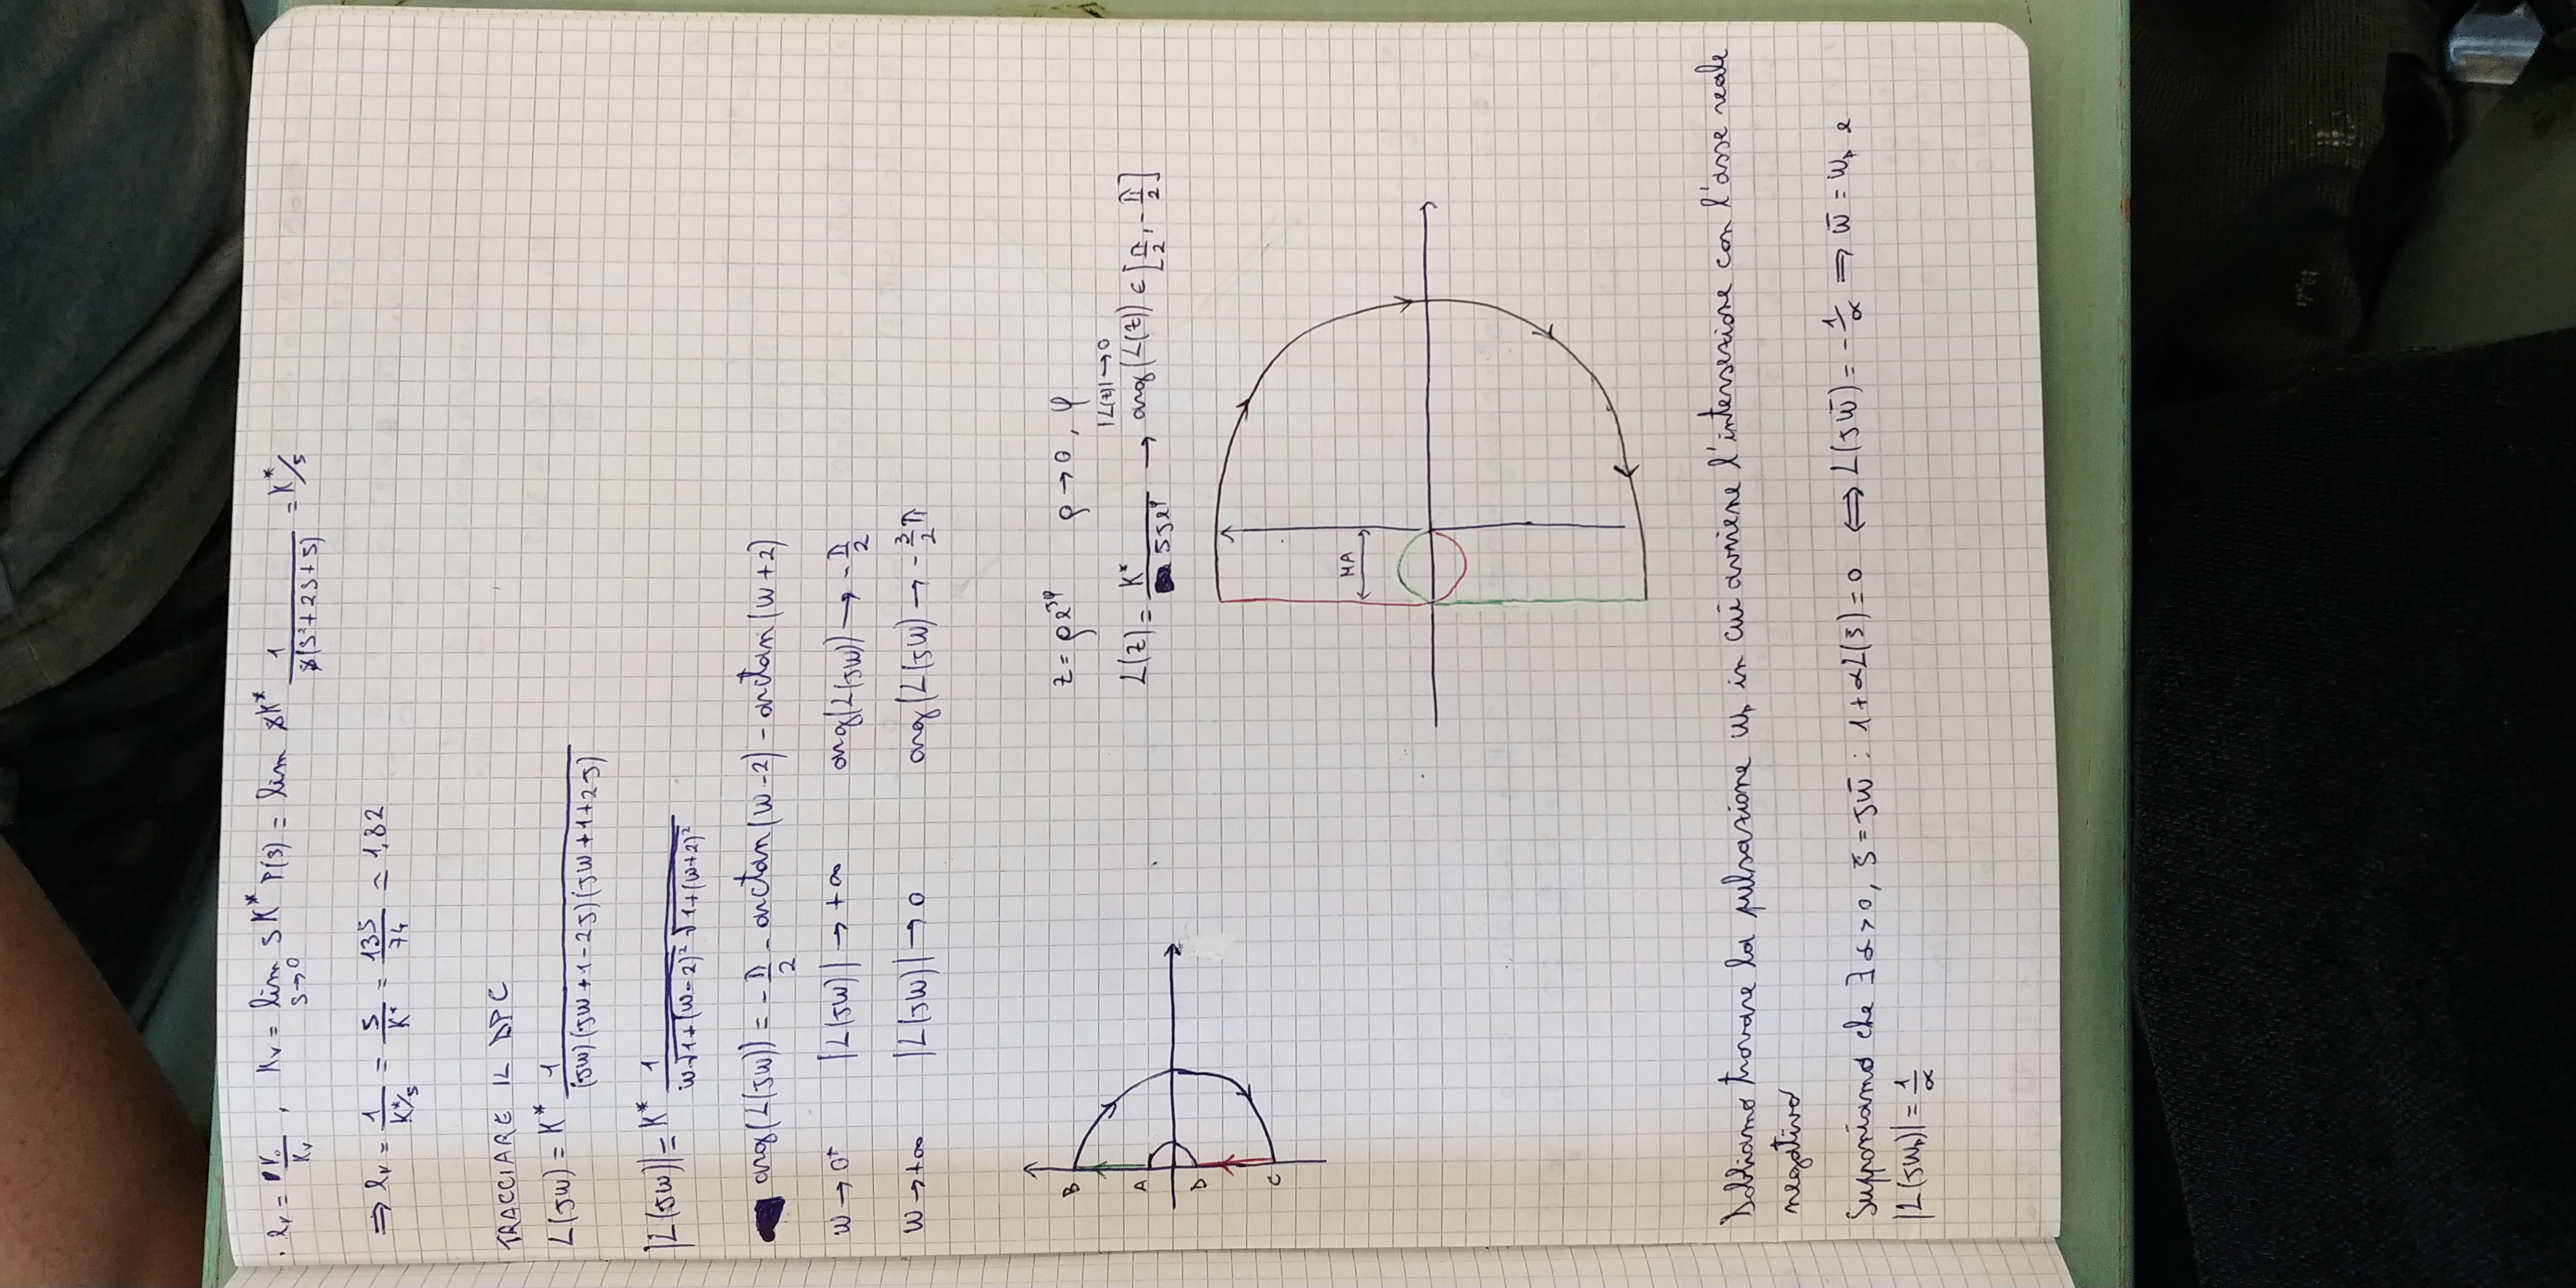 · eᵥ = V₀/Kᵥ , Kᵥ = lim s→0 s K* P(s) = lim s K* 1/(s(s²+2s+5)) = K*/5
⇒ eᵥ = 1/(K*/5) = 5/K* = 135/74 ≃ 1,82
TRACCIARE IL DPC
L(jw) = K* 1/((jw)(jw+1-2j)(jw+1+2j))
|L(jw)| = K* 1/(w√(1+(w-2)²) √(1+(w+2)²))
arg(L(jw)) = -π/2 - arctan(w-2) - arctan(w+2)
w → 0⁺ |L(jw)| → +∞ arg(L(jw)) → -π/2
w → +∞ |L(jw)| → 0 arg(L(jw) → -3/2 π
B
A
D
C
z = ρe^jφ ρ → 0 , φ
|L(z)| → 0
L(z) = K*/(5ρe^φ) → arg(L(z)) ∈ [π/2, -π/2]
MA
Dobbiamo trovare la pulsazione wₚ in cui avviene l'intersezione con l'asse reale
negativo
Supponiamo che ∃ α > 0, s̄ = jw̄ : 1+αL(s̄) = 0 ⟺ L(jw̄) = -1/α ⇒ w̄ = wₚ e
|L(jwₚ)| = 1/α